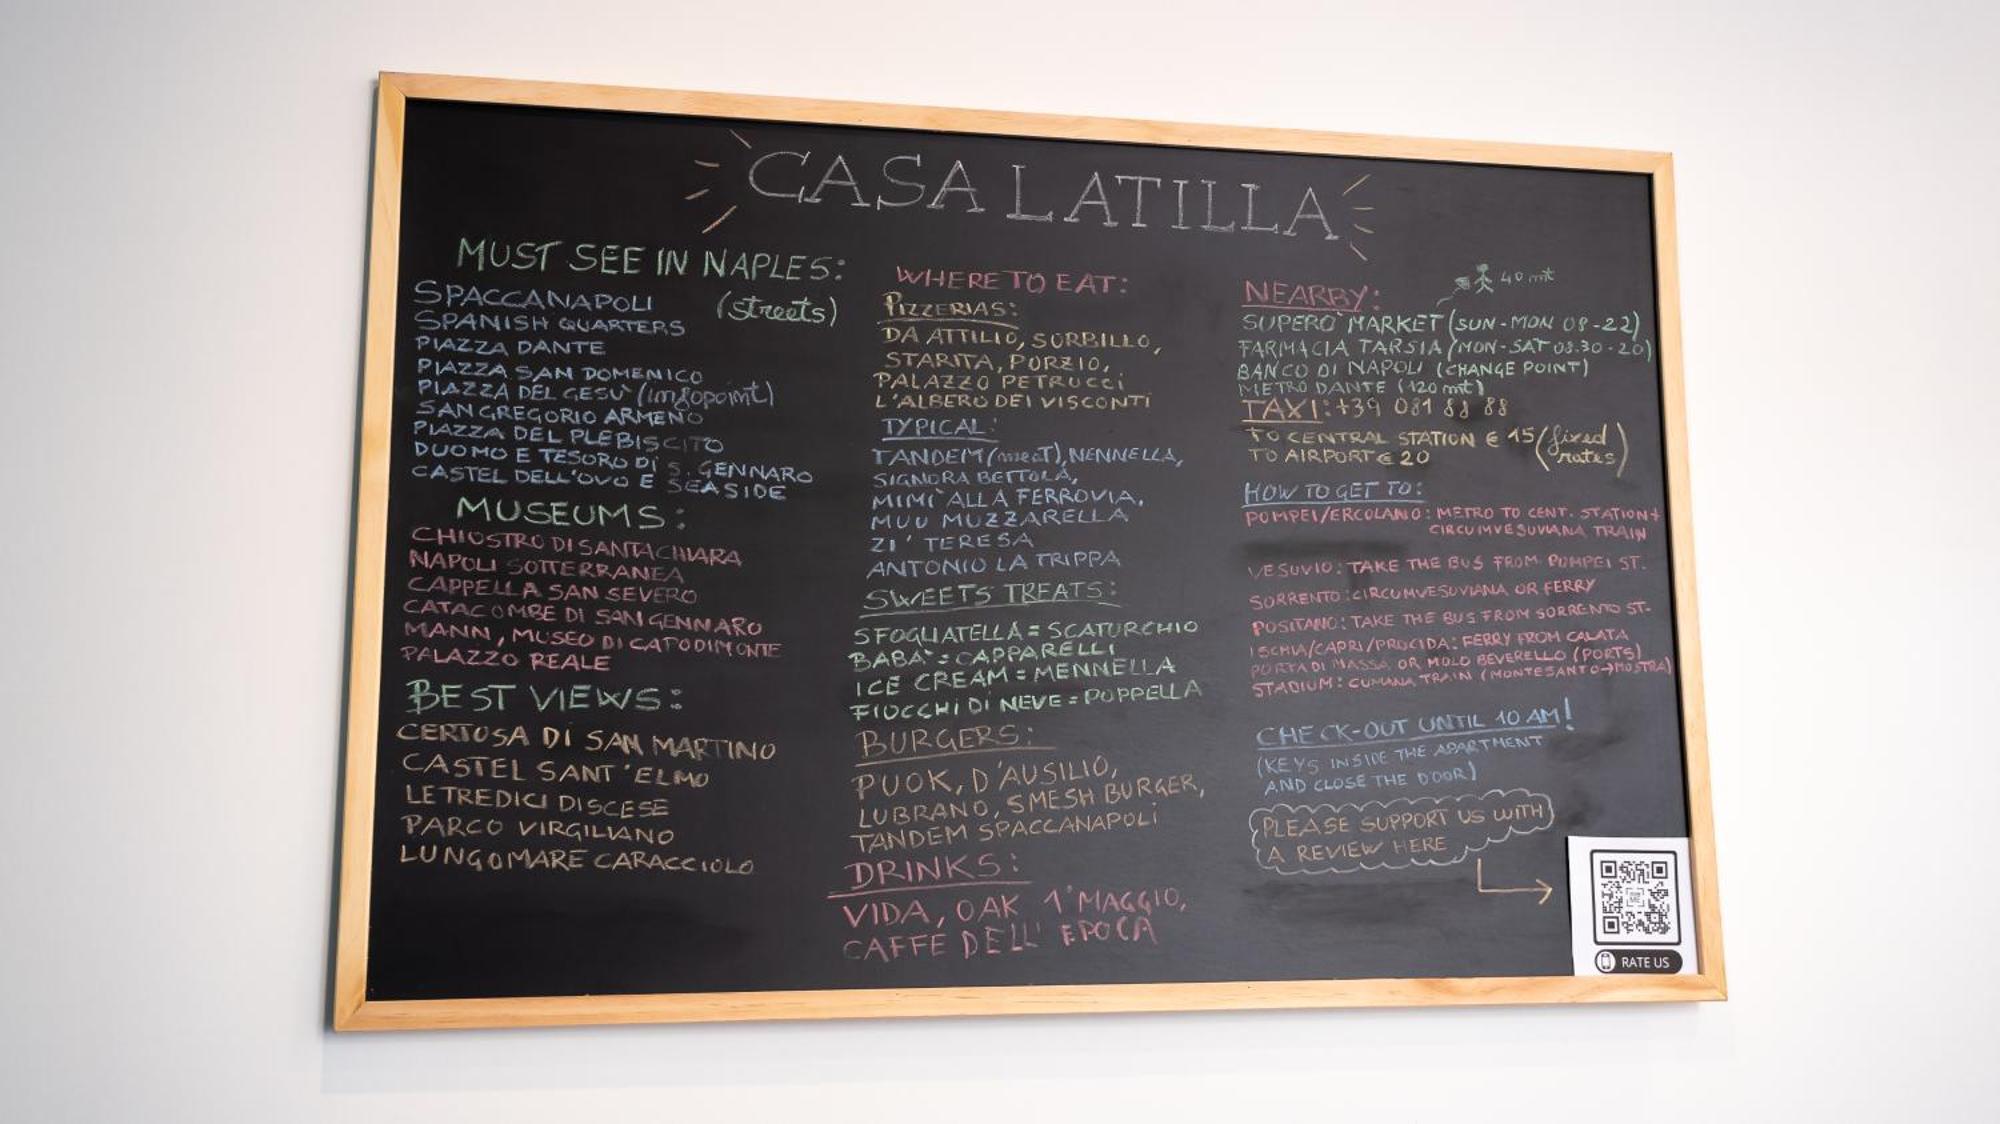 CASA LATILLA
MUST SEE IN NAPLES:
(streets)
SPACCANAPOLI
SPANISH QUARTERS
PIAZZA DANTE
PIAZZA SAN DOMENICO
PIAZZA DEL GESU' (infopoint)
SAN GREGORIO ARMENO
PIAZZA DEL PLEBISCITO
DUOMO E TESORO DI S. GENNARO
CASTEL DELL'OVO E SEASIDE
MUSEUMS:
CHIOSTRO DI SANTA CHIARA
NAPOLI SOTTERRANEA
CAPPELLA SAN SEVERO
CATACOMBE DI SAN GENNARO
MANN, MUSEO DI CAPODIMONTE
PALAZZO REALE
BEST VIEWS:
CERTOSA DI SAN MARTINO
CASTEL SANT'ELMO
LE TREDICI DISCESE
PARCO VIRGILIANO
LUNGOMARE CARACCIOLO
WHERE TO EAT:
PIZZERIAS:
DA ATTILIO, SORBILLO,
STARITA, PORZIO,
PALAZZO PETRUCCI
L'ALBERO DEI VISCONTI
TYPICAL:
TANDEM (meat), NENNELLA,
SIGNORA BETTOLA,
MIMI' ALLA FERROVIA,
MUU MUZZARELLA
ZI' TERESA
ANTONIO LA TRIPPA
SWEETS TREATS:
SFOGLIATELLA = SCATURCHIO
BABA' = CAPPARELLI
ICE CREAM = MENNELLA
FIOCCHI DI NEVE = POPPELLA
BURGERS:
PUOK, D'AUSILIO,
LUBRANO, SMESH BURGER,
TANDEM SPACCANAPOLI
DRINKS:
VIDA, OAK 1°MAGGIO,
CAFFE DELL' EPOCA
40 mt
NEARBY:
SUPERO' MARKET (SUN-MON 08-22)
FARMACIA TARSIA (MON-SAT 08.30-20)
BANCO DI NAPOLI (CHANGE POINT)
METRO DANTE (120 mt)
TAXI: +39 081 88 88
TO CENTRAL STATION € 15 (fixed
TO AIRPORT € 20 rates)
HOW TO GET TO:
POMPEI/ERCOLANO: METRO TO CENT. STATION +
CIRCUMVESUVIANA TRAIN
VESUVIO: TAKE THE BUS FROM POMPEI ST.
SORRENTO: CIRCUMVESUVIANA OR FERRY
POSITANO: TAKE THE BUS FROM SORRENTO ST.
ISCHIA/CAPRI/PROCIDA: FERRY FROM CALATA
PORTA DI MASSA OR MOLO BEVERELLO (PORTS)
STADIUM: CUMANA TRAIN (MONTESANTO→MOSTRA)
CHECK-OUT UNTIL 10 AM!
(KEYS INSIDE THE APARTMENT
AND CLOSE THE DOOR)
PLEASE SUPPORT US WITH
A REVIEW HERE
RATE US